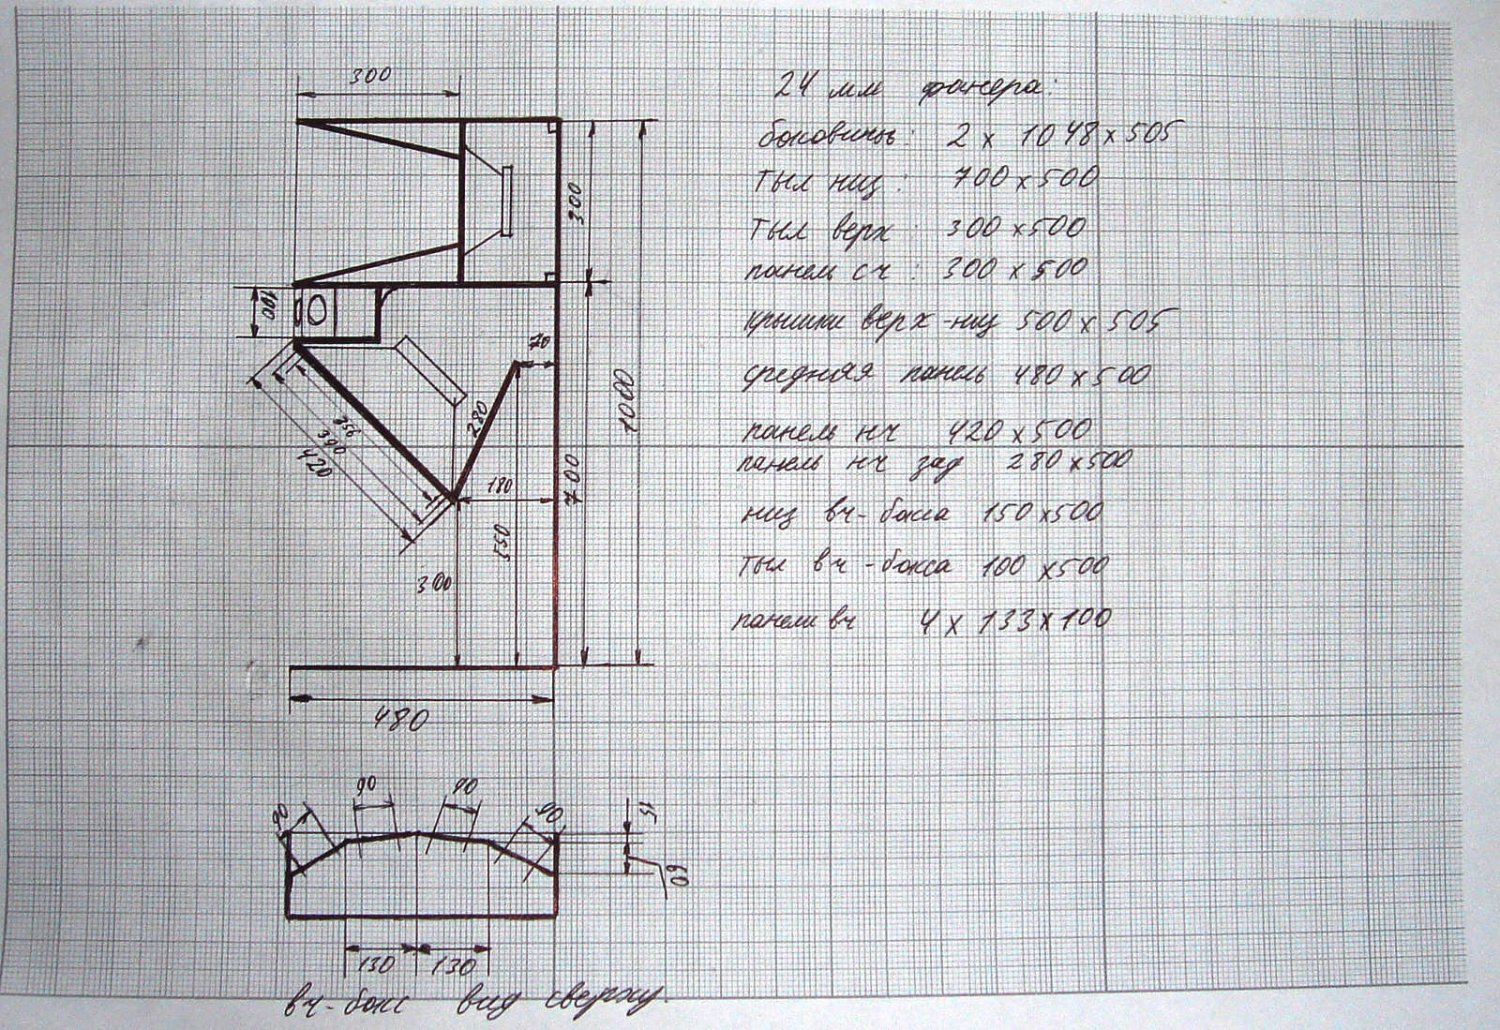 300
24 мм фанера:
боковины: 2 х 1048 х 505
тыл низ: 700 х 500
300
тыл верх: 300 х 500
панель сч: 300 х 500
100
крышки верх-низ 500 х 505
70
средняя панель 480 х 500
1000
280
350
390
420
панель нч 420 х 500
панель нч зад 280 х 500
700
180
низ вч-бокса 150 х 500
550
300
тыл вч-бокса 100 х 500
панели вч 4 х 133 х 100
480
90
90
90
90
15
60
130
130
вч-бокс вид сверху.